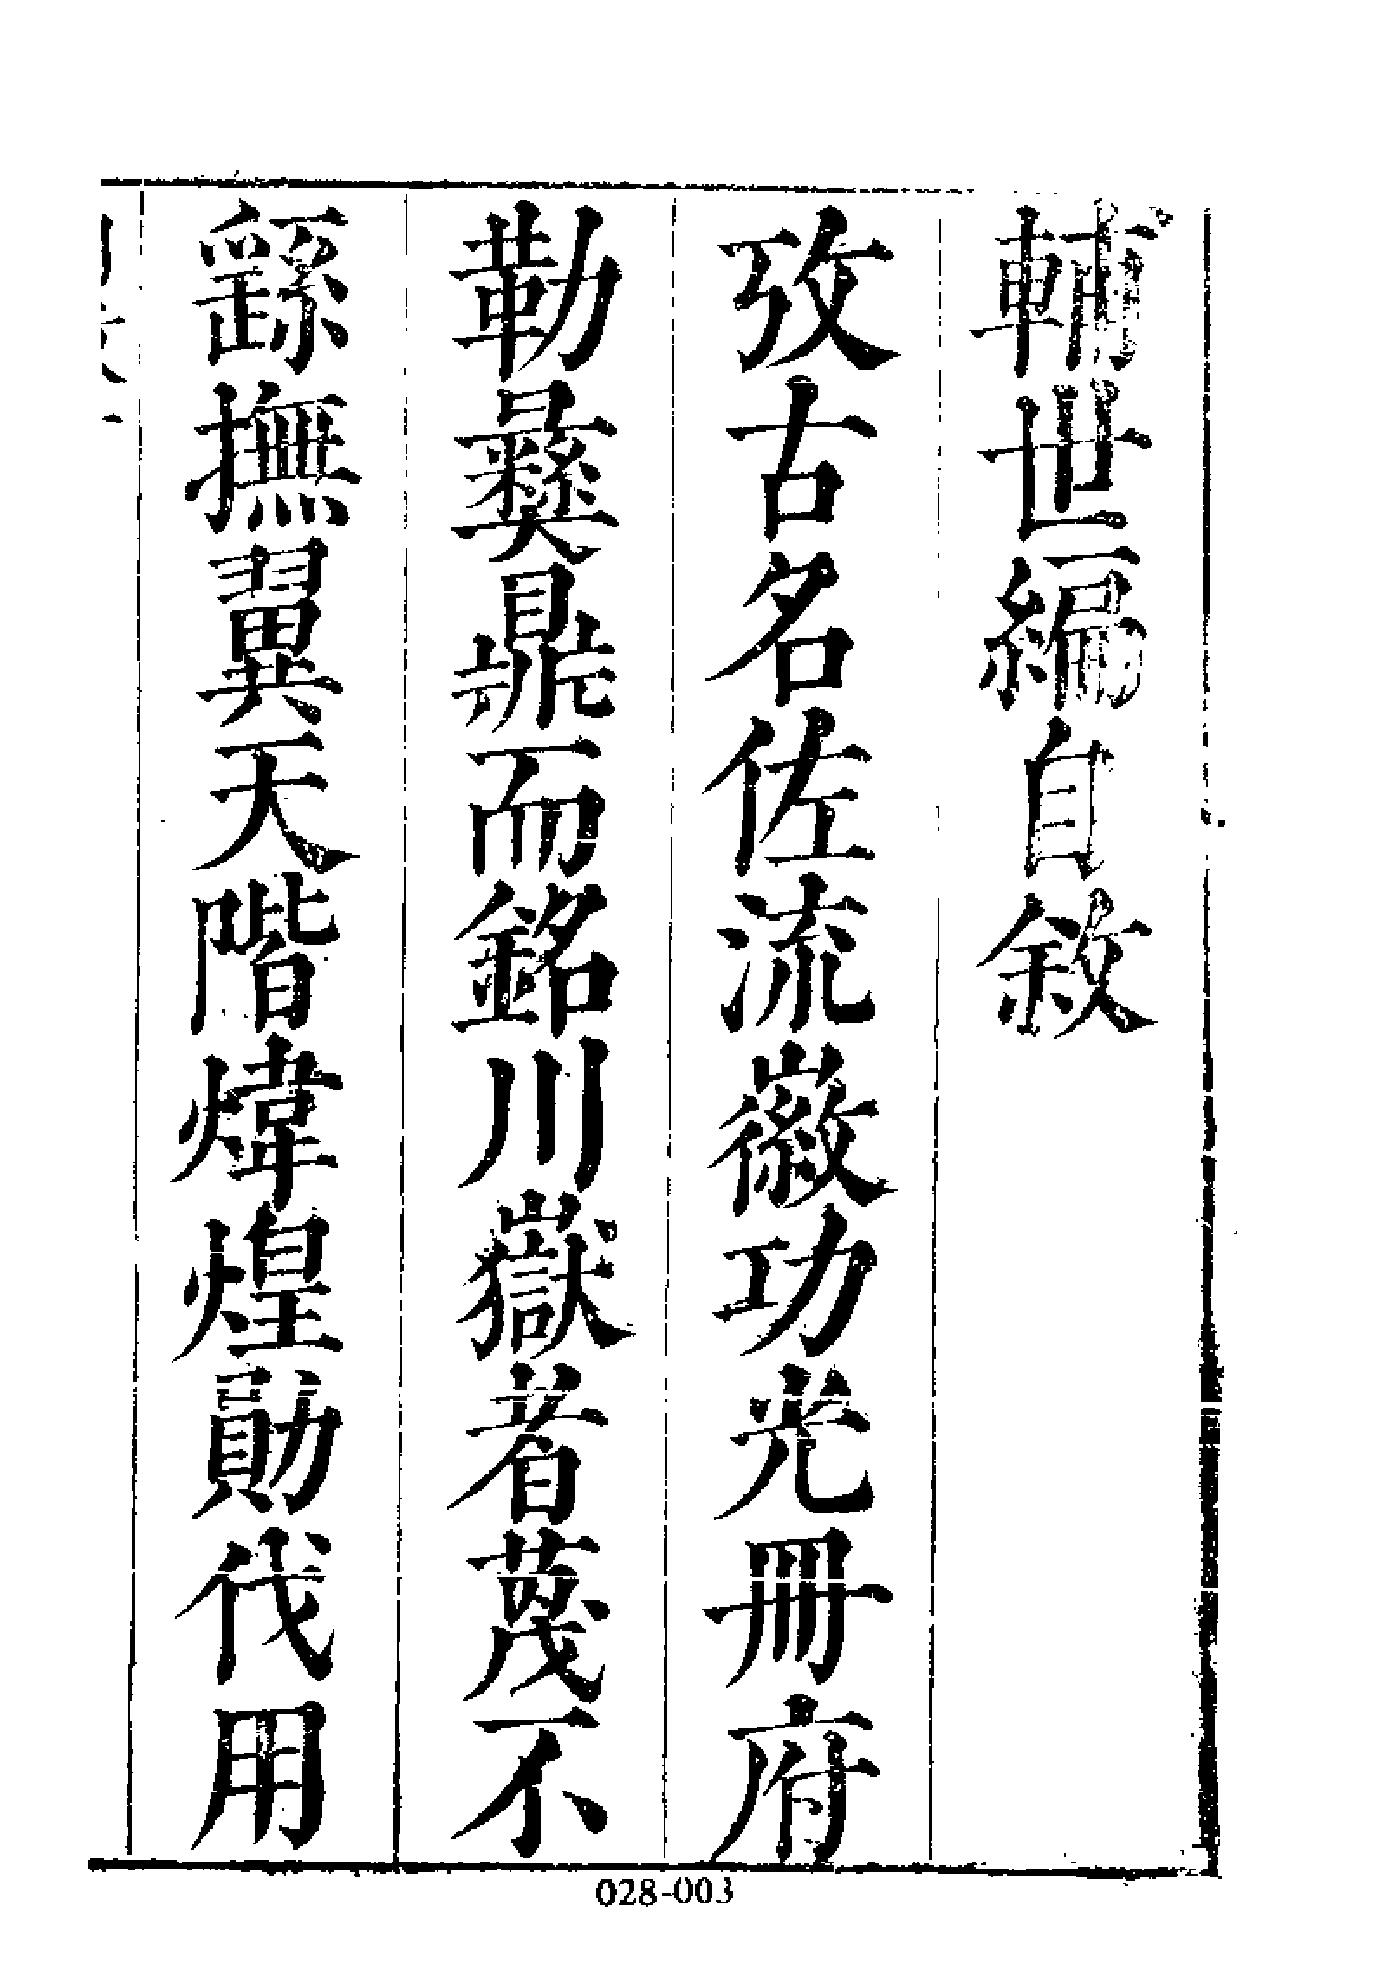 輔世編自敘
攷古名佐流徽功光冊府
勒彞鼎而銘川嶽者蔑不
繇撫翼天階煒煌勛伐用
028-003